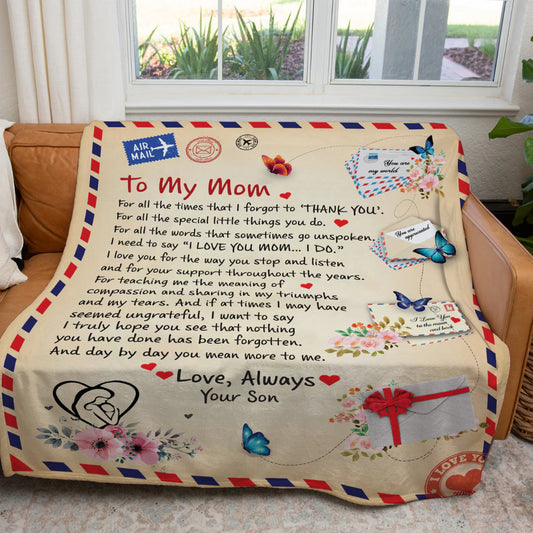 AIR
MAIL
To My Mom
For all the times that I forgot to 'THANK YOU'.
For all the special little things you do.
For all the words that sometimes go unspoken
I need to say "I LOVE YOU MOM... I DO."
I love you for the way you stop and listen
and for your support throughout the years.
For teaching me the meaning of
compassion and sharing in my triumphs
and my tears. And if at times I may have
seemed ungrateful, I want to say
I truly hope you see that nothing
you have done has been forgotten.
And day by day you mean more to me.
Love, Always
Your Son
You are
my world
You are
appreciated
I Love You
to the moon
and back
I LOVE YOU